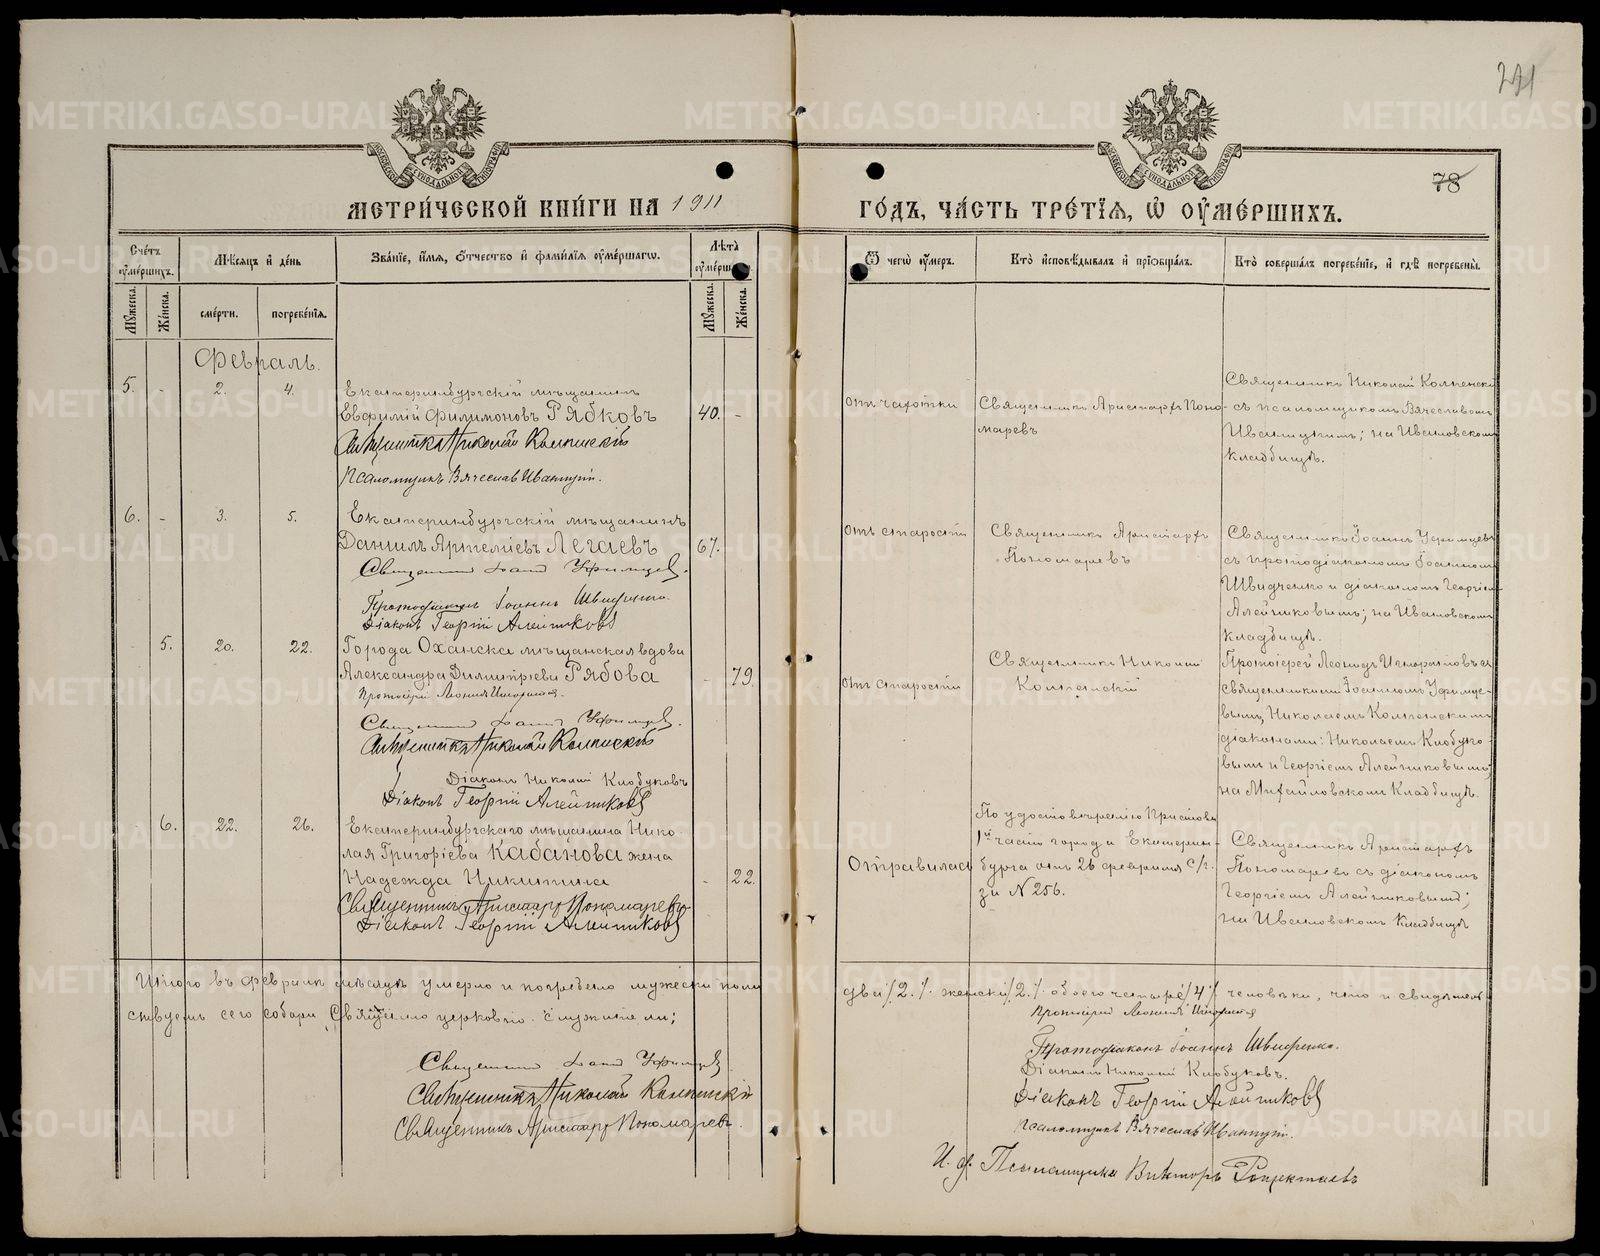 271
78
МЕТРИ́ЧЕСКОЙ КНИ́ГИ НА 1911
ГО́ДЪ, ЧА́СТЬ ТРЕ́ТЇѦ, Ѡ ОУМЕ́РШИХЪ.
Сче́тъ оуме́ршихъ.
Мѣ́сяцъ и де́нь
Зва́нїе, и́мя, о́тчество и фами́лїя оуме́ршагѡ.
Лѣта̀ оуме́ршагѡ
Ѿ чегѡ̀ оу́меръ.
Кто̀ исповѣ́дывалъ и прїобща́лъ.
Кто̀ соверша́лъ погребе́нїе, и гдѣ̀ погребены̀.
Му́жеска.
Же́нска.
сме́рти.
погребе́нїя.
Му́жеска.
Же́нска.
Февраль.
5. - 2. 4.
Екатеринбургскій мѣщанинъ
Евфимій Филимоновъ Рябковъ
40. -
Священникъ Николай
Псаломщикъ Вячеславъ
отъ чахотки
Священникъ Аристархъ Поно-
маревъ
Священникъ Николай
съ псаломщикомъ Вячеславомъ
на Ивановскомъ
кладбищѣ.
6. - 3. 5.
Екатеринбургскій мѣщанинъ
Даніилъ Артеміевъ Легаевъ
67. -
Священникъ Іоаннъ Уфимцевъ.
Протодіаконъ Іоаннъ
Діаконъ Георгій Алейниковъ
отъ старости
Священникъ Аристархъ
Пономаревъ
Священникъ Іоаннъ Уфимцевъ
съ протодіакономъ Іоанномъ
и діакономъ Георгіемъ
Алейниковымъ; на Ивановскомъ
кладбищѣ.
- 5. 20. 22.
Города Оханска мѣщанская вдова
Александра Димитріева Рябова
- 79.
Протоіерей Леонидъ
Священникъ Іоаннъ Уфимцевъ.
Священникъ Николай
Діаконъ Николай Клобуковъ
Діаконъ Георгій Алейниковъ
отъ старости
Священникъ Николай
Протоіерей Леонидъ
священниками: Іоанномъ Уфимце-
вымъ, Николаемъ
діаконами: Николаемъ Клобуко-
вымъ и Георгіемъ Алейниковымъ;
на Михайловскомъ кладбищѣ.
- 6. 22. 26.
Екатеринбургскаго мѣщанина Нико-
лая Григоріева Кабанова жена
Надежда Никитина
- 22.
Священникъ Аристархъ Пономаревъ
Діаконъ Георгій Алейниковъ
Отравилась
По удостовѣренію Пристава
1й части города Екатерин-
бурга отъ 26 февраля с/г.
за № 256.
Священникъ Аристархъ
Пономаревъ съ діакономъ
Георгіемъ Алейниковымъ;
на Ивановскомъ кладбищѣ
Итого въ февралѣ мѣсяцѣ умерло и погребено мужеска пола
два /2./. женска /2./. обоего четыре /4./ человѣка, что и свидѣтель-
ствуемъ сего собора Священно церковно служители;
Священникъ Іоаннъ Уфимцевъ
Священникъ Николай
Священникъ Аристархъ Пономаревъ.
Протоіерей Леонидъ
Протодіаконъ Іоаннъ
Діаконъ Николай Клобуковъ.
Діаконъ Георгій Алейниковъ
Псаломщикъ Вячеславъ
И. д. Псаломщика Викторъ
METRIKI.GASO-URAL.RU